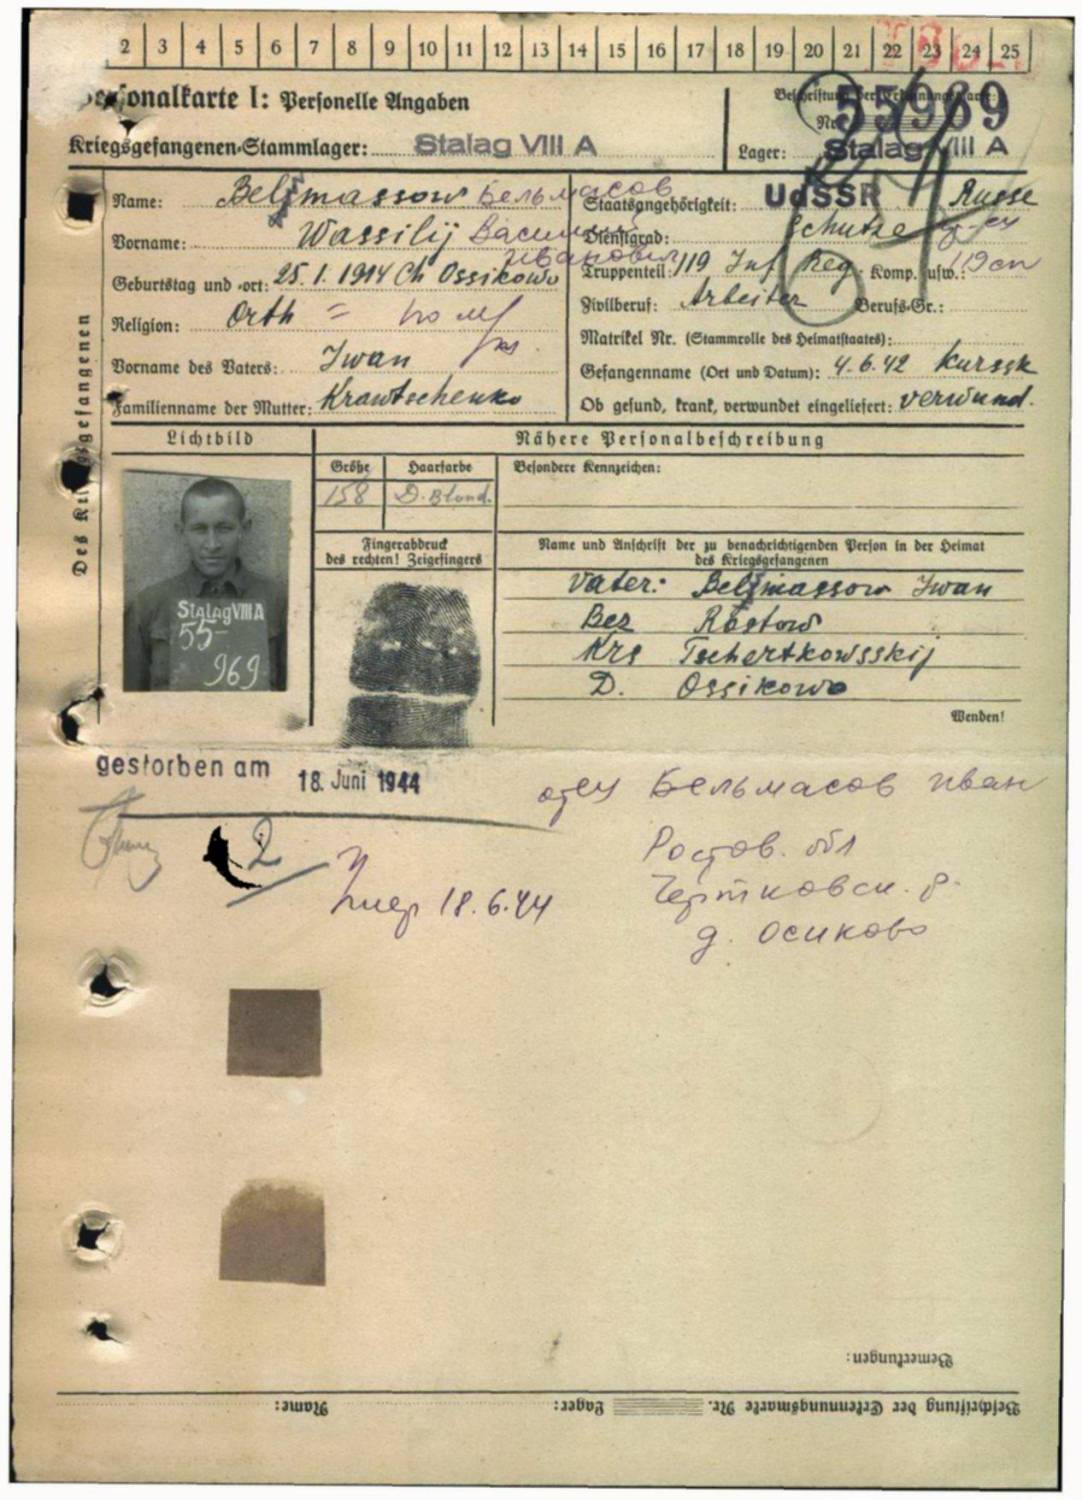 2 3 4 5 6 7 8 9 10 11 12 13 14 15 16 17 18 19 20 21 22 23 24 25
Personalkarte I: Personelle Angaben
Kriegsgefangenen-Stammlager: Stalag VIII A
Beschriftung der Erkennungsmarke:
Nr. 55969
Lager: Stalag VIII A
Des Kriegsgefangenen
Name: Belsmassow Бельмасов
Vorname: Wassilij Василий
Иванович
Geburtstag und -ort: 25.1.1914 Ch Ossikowo
Religion: Orth =
Vorname des Vaters: Iwan
Familienname der Mutter: Krawtschenko
Staatsangehörigkeit: UdSSR Russe
Dienstgrad: Schütze
Truppenteil: 119 Inf Reg. Komp. usw.: 119 сп
Zivilberuf: Arbeiter Berufs-Gr.:
Matrikel Nr. (Stammrolle des Heimatstaates):
Gefangenname (Ort und Datum): 4.6.42 Kurssk
Ob gesund, krank, verwundet eingeliefert: verwund.
Lichtbild
Nähere Personalbeschreibung
Größe Haarfarbe
158 D. Blond.
Besondere Kennzeichen:
Fingerabdruck
des rechten! Zeigefingers
Stalag VIII A
55-
969
Name und Anschrift der zu benachrichtigenden Person in der Heimat
des Kriegsgefangenen
Vater: Belsmassow Iwan
Bez Rostow
Krs Tschertkowsskij
D. Ossikowo
Wenden!
gestorben am 18. Juni 1944
отец Бельмасов Иван
Ростов. обл
Чертковск. р.
д. Осиково
2
умер 18.6.44
Bemerkungen:
Beschriftung der Erkennungsmarke Nr. Lager: Name: